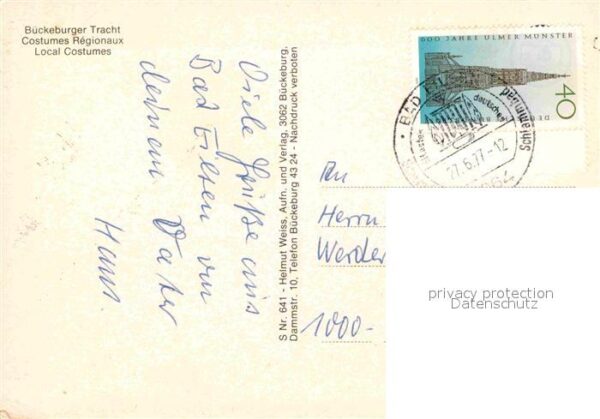 Bückeburger Tracht
Costumes Régionaux
Local Costumes
Viele Grüße aus
Bad Eilsen von
deinem Vater
Hans.
S Nr. 641 - Helmut Weiss, Aufn. und Verlag, 3062 Bückeburg,
Dammstr. 10, Telefon Bückeburg 43 24 - Nachdruck verboten
600 JAHRE ULMER MÜNSTER
40
BAD
Schlammbad
deutsches
27.6.77-12
An
Herrn
Werder
1000-
privacy protection
Datenschutz